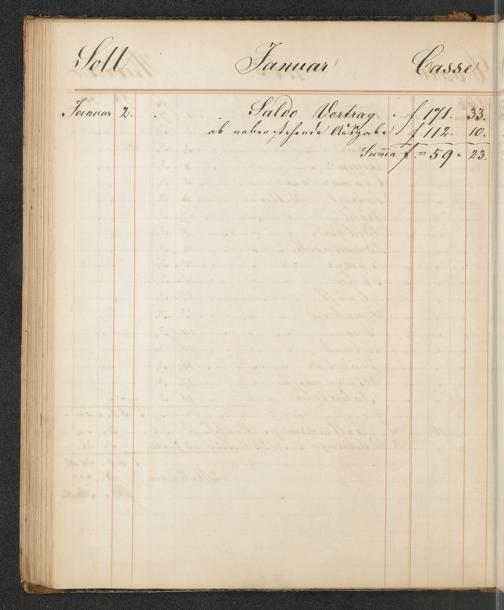 Soll Januar Casse
Januar 2. Saldo Vortrag f 171. 33.
ab nebenstehende Ausgabe f 112. 10.
Summa f = 59 " 23.